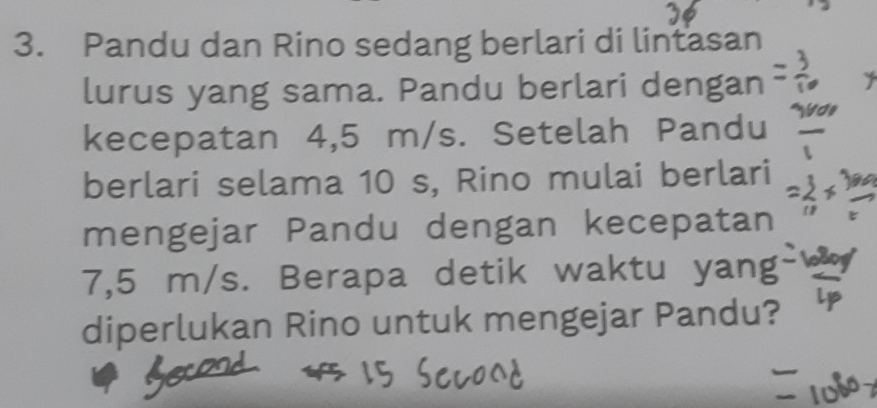 36
3. Pandu dan Rino sedang berlari di lintasan
lurus yang sama. Pandu berlari dengan
kecepatan 4,5 m/s. Setelah Pandu
berlari selama 10 s, Rino mulai berlari
mengejar Pandu dengan kecepatan
7,5 m/s. Berapa detik waktu yang
diperlukan Rino untuk mengejar Pandu?
Second 15 Second